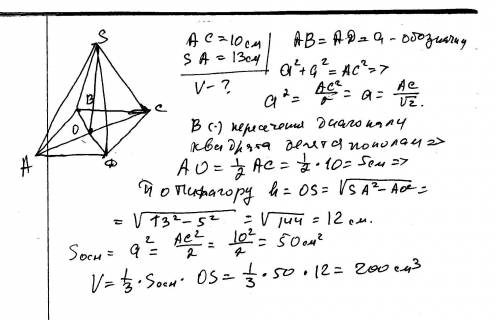 S
B
C
O
A
D
AC = 10 см
SA = 13 см
V - ?
AB = AD = a - обозначим
a² + a² = AC² =>
a² = AC²/2 = a = AC/√2.
В (·) пересечения диагонали
квадрата делятся пополам =>
AO = 1/2 AC = 1/2 · 10 = 5 см =>
По Пифагору h = OS = √SA² - AO² =
= √13² - 5² = √144 = 12 см.
Sосн = a² = AC²/2 = 10²/2 = 50 см²
V = 1/3 · Sосн · OS = 1/3 · 50 · 12 = 200 см³